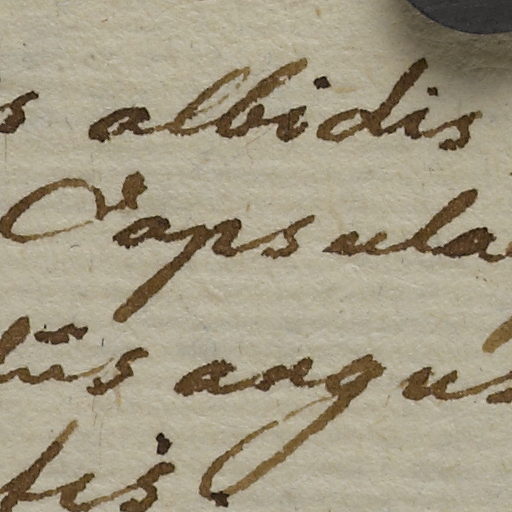 s albidis
Capsula
liis angus
tis